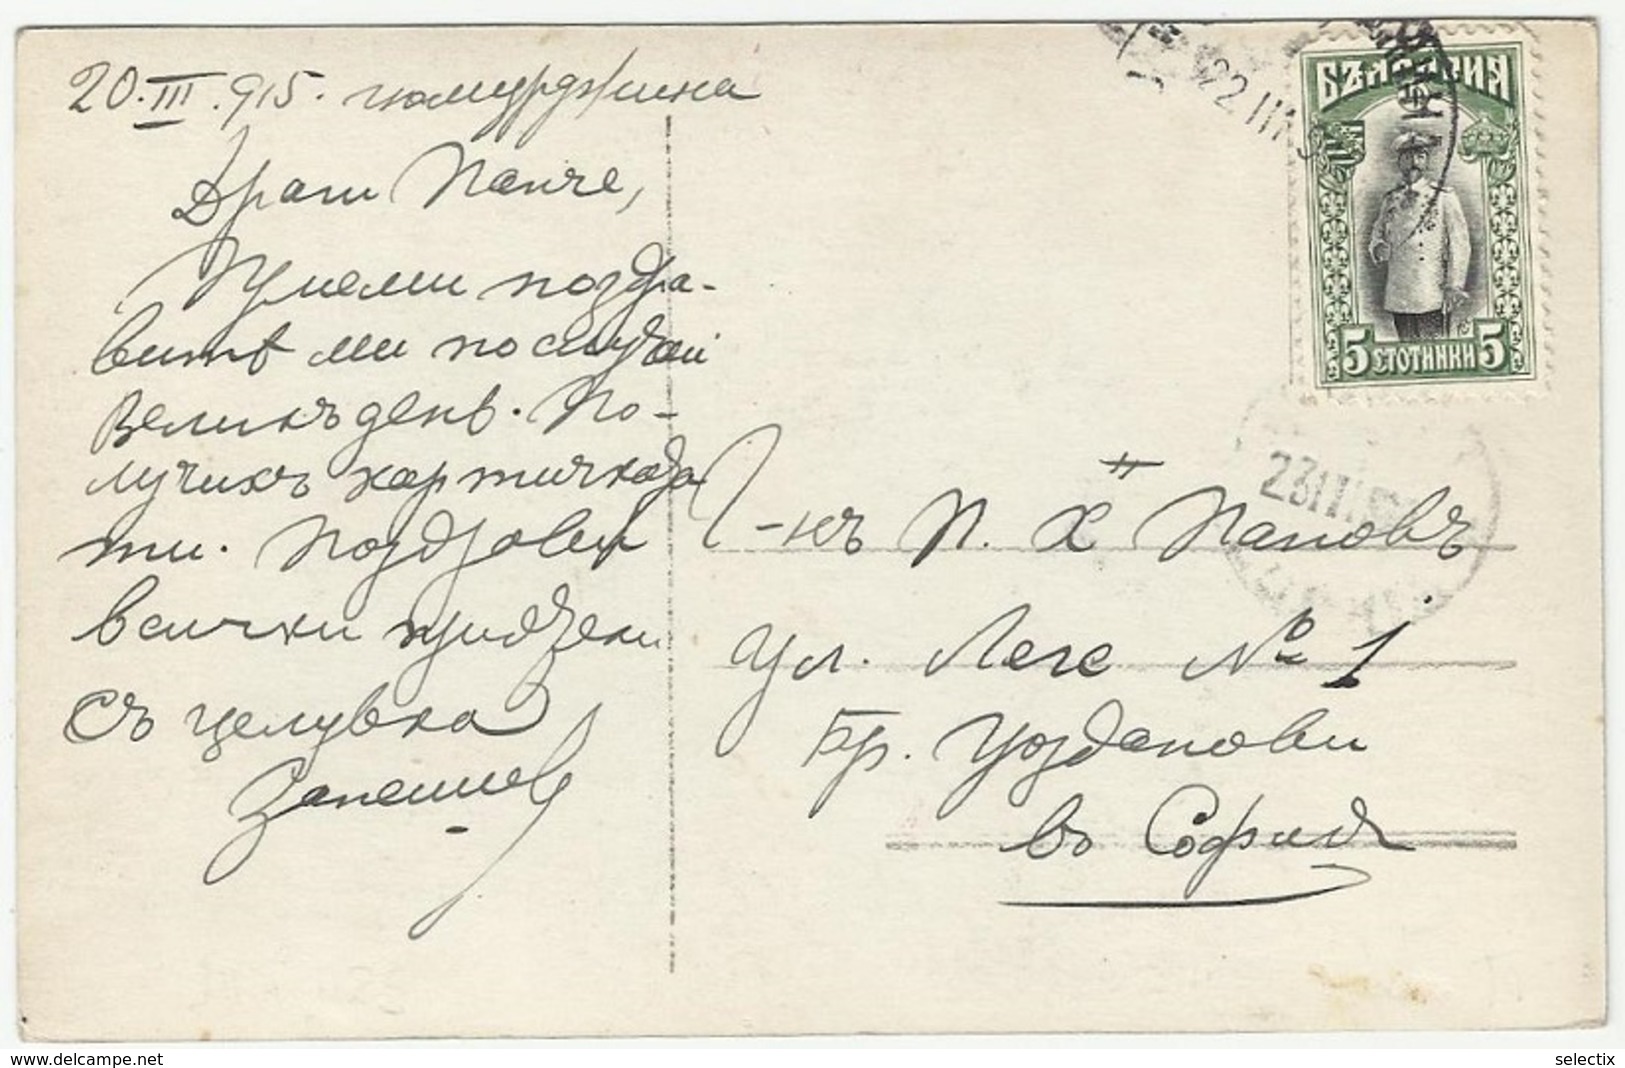 20.III.915. гюмурджина
Драги Панче,
Приеми поздра-
витѣ ми по случай
Великъ день. По-
лучихъ картичката
ти. Поздрови
всички
Съ целувка
БЪЛГАРИЯ
5 СТОТИНКИ 5
22 III
23 III
Г-нъ П. Х" Пановъ
ул. Леге № 1
Бр.
въ София
www.delcampe.net
selectix